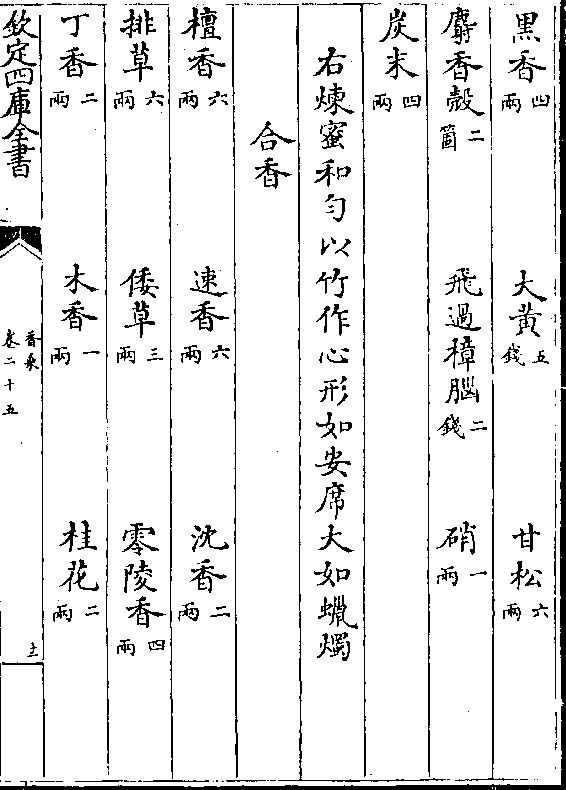 黒香四兩　大黃五錢　甘松六兩
麝香殼二箇　飛過樟腦二錢　硝一兩
炭末四兩
右煉蜜和勻以竹作心形如安席大如蠟燭
合香
檀香六兩　速香六兩　沈香二兩
排草六兩　倭草三兩　零陵香四兩
丁香二兩　木香一兩　桂花二兩
欽定四庫全書　香乘卷二十五